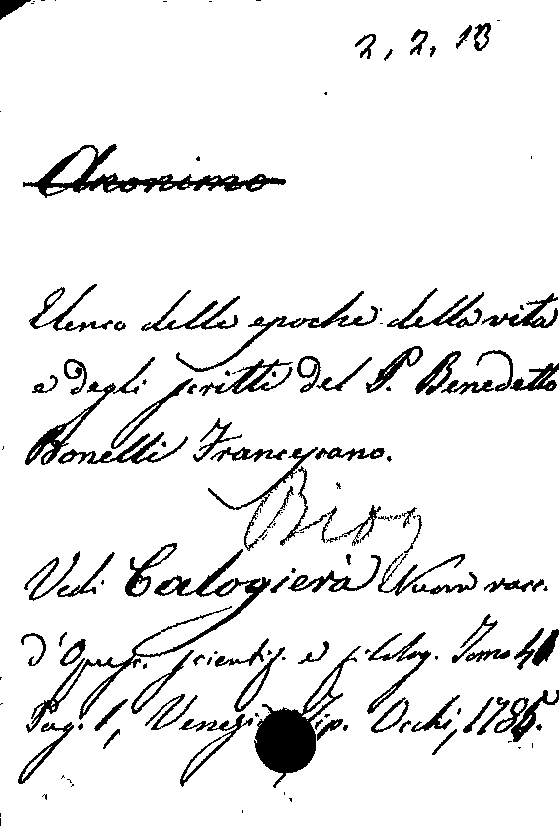 2, 2, 13
Anonimo
Elenco delle epoche della vita
e degli scritti del P. Benedetto
Bonelli Francescano.
Biog
Vedi Calogierà Nuova racc.
d'Opusc. scientif. e filolog. Tomo 40
Pag. 1, Venezia Tip. Occhi, 1785.